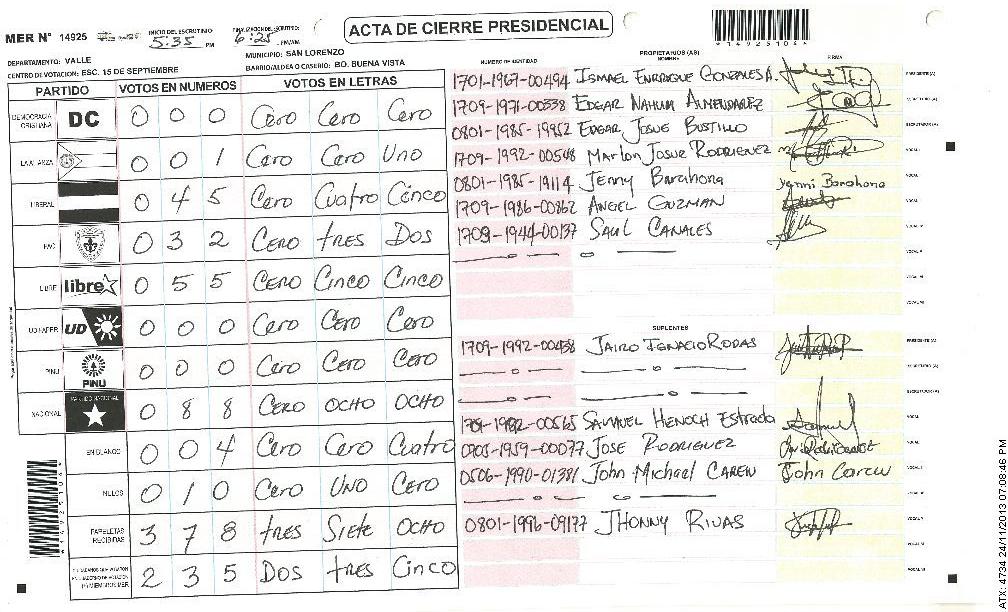 ACTA DE CIERRE PRESIDENCIAL
MER N° 14925
INICIO DEL ESCRUTINIO: 5:35 PM
6:25 PM
*1492510
DEPARTAMENTO: VALLE
MUNICIPIO: SAN LORENZO
CENTRO DE VOTACION: ESC. 15 DE SEPTIEMBRE
BARRIO/ALDEA O CASERIO: BO. BUENA VISTA
PARTIDO VOTOS EN NUMEROS VOTOS EN LETRAS
DEMOCRACIA CRISTIANA DC 0 0 0 Cero Cero Cero
LA ALIANZA 0 0 1 Cero Cero Uno
LIBERAL 0 4 5 Cero Cuatro Cinco
PAC 0 3 2 CERO tRES DOS
LIBRE libre 0 5 5 CERO CINCO CINCO
UD FAPER UD 0 0 0 Cero Cero Cero
PINU PINU 0 0 0 Cero Cero Cero
NACIONAL PARTIDO NACIONAL 0 8 8 CERO OCHO OCHO
EN BLANCO 0 0 4 Cero Cero Cuatro
NULOS 0 1 0 Cero UNO Cero
PAPELETAS RECIBIDAS 3 7 8 tRES SIETE OCHO
2 3 5 DOS tRES CINCO
PROPIETARIOS (AS)
NUMERO DE IDENTIDAD NOMBRE FIRMA
1701-1967-00494 ISMAEL ENRRIQUE GONZALES A. PRESIDENTE (A)
1709-1971-00338 EDGAR NAHUM ALMENDAREZ SECRETARIO (A)
0801-1985-19952 EDGAR JOSUE BUSTILLO ESCRUTADOR (A)
1709-1992-00548 Marlon Josue RODRIGUEZ VOCAL I
0801-1985-19114 Jenny Barahona Yenni Barahona
1709-1986-00862 ANGEL GUZMAN
1709-1944-00137 SAUL CANALES
SUPLENTES
1709-1992-00438 JAIRO IGNACIO RODAS PRESIDENTE (A)
SECRETARIO (A)
ESCRUTADOR (A)
1709-1982-00565 SAMUEL HENOCH Estrada Samuel
-1959-00077 JOSE RODRIGUEZ
0506-1990-01381 John Michael CAREW John Carew
0801-1996-09177 JHONNY RIVAS
ATX: 4734 24/11/2013 07:08:46 PM